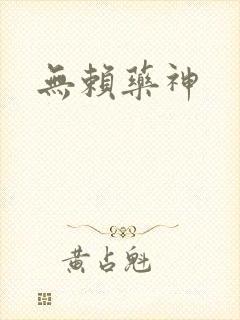 無賴藥神
黄占魁